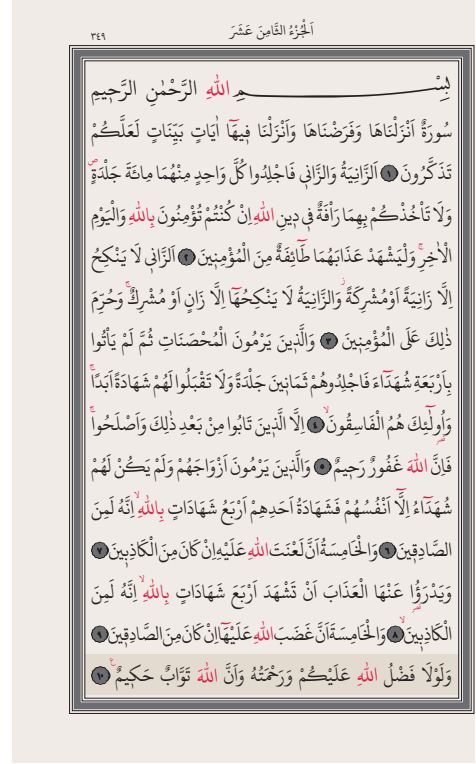 اَلْجُزْءُ الثَّامِنَ عَشَرَ
٣٤٩
بِسْمِ اللهِ الرَّحْمٰنِ الرَّحٖيمِ
سُورَةٌ اَنْزَلْنَاهَا وَفَرَضْنَاهَا وَاَنْزَلْنَا فٖيهَٓا اٰيَاتٍ بَيِّنَاتٍ لَعَلَّكُمْ
تَذَكَّرُونَ ﴿١﴾ اَلزَّانِيَةُ وَالزَّانٖى فَاجْلِدُوا كُلَّ وَاحِدٍ مِنْهُمَا مِائَةَ جَلْدَةٍࣕ
وَلَا تَأْخُذْكُمْ بِهِمَا رَأْفَةٌ فٖى دٖينِ اللهِ اِنْ كُنْتُمْ تُؤْمِنُونَ بِاللهِ وَالْيَوْمِ
الْاٰخِرِۚ وَلْيَشْهَدْ عَذَابَهُمَا طَٓائِفَةٌ مِنَ الْمُؤْمِنٖينَ ﴿٢﴾ اَلزَّانٖى لَا يَنْكِحُ
اِلَّا زَانِيَةً اَوْ مُشْرِكَةًؗ وَالزَّانِيَةُ لَا يَنْكِحُهَٓا اِلَّا زَانٍ اَوْ مُشْرِكٌۚ وَحُرِّمَ
ذٰلِكَ عَلَى الْمُؤْمِنٖينَ ﴿٣﴾ وَالَّذٖينَ يَرْمُونَ الْمُحْصَنَاتِ ثُمَّ لَمْ يَأْتُوا
بِاَرْبَعَةِ شُهَدَٓاءَ فَاجْلِدُوهُمْ ثَمَانٖينَ جَلْدَةً وَلَا تَقْبَلُوا لَهُمْ شَهَادَةً اَبَدًاۚ
وَاُو۬لٰٓئِكَ هُمُ الْفَاسِقُونَۙ ﴿٤﴾ اِلَّا الَّذٖينَ تَابُوا مِنْ بَعْدِ ذٰلِكَ وَاَصْلَحُواۚ
فَاِنَّ اللهَ غَفُورٌ رَحٖيمٌ ﴿٥﴾ وَالَّذٖينَ يَرْمُونَ اَزْوَاجَهُمْ وَلَمْ يَكُنْ لَهُمْ
شُهَدَٓاءُ اِلَّٓا اَنْفُسُهُمْ فَشَهَادَةُ اَحَدِهِمْ اَرْبَعُ شَهَادَاتٍ بِاللهِۙ اِنَّهُ لَمِنَ
الصَّادِقٖينَ ﴿٦﴾ وَالْخَامِسَةُ اَنَّ لَعْنَتَ اللهِ عَلَيْهِ اِنْ كَانَ مِنَ الْكَاذِبٖينَ ﴿٧﴾
وَيَدْرَؤُا عَنْهَا الْعَذَابَ اَنْ تَشْهَدَ اَرْبَعَ شَهَادَاتٍ بِاللهِۙ اِنَّهُ لَمِنَ
الْكَاذِبٖينَۙ ﴿٨﴾ وَالْخَامِسَةَ اَنَّ غَضَبَ اللهِ عَلَيْهَٓا اِنْ كَانَ مِنَ الصَّادِقٖينَ ﴿٩﴾
وَلَوْلَا فَضْلُ اللهِ عَلَيْكُمْ وَرَحْمَتُهُ وَاَنَّ اللهَ تَوَّابٌ حَكٖيمٌࣖ ﴿١٠﴾